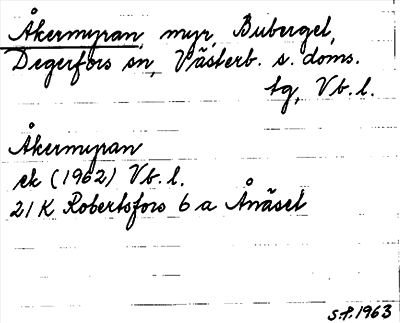 Åkermyran, myr, Buberget,
Degerfors sn, Västerb. s. doms.
tg, Vb. l.
Åkermyran
ek (1962) Vb. l.
21 K Robertsfors 6 a Ånäset
S.P. 1963